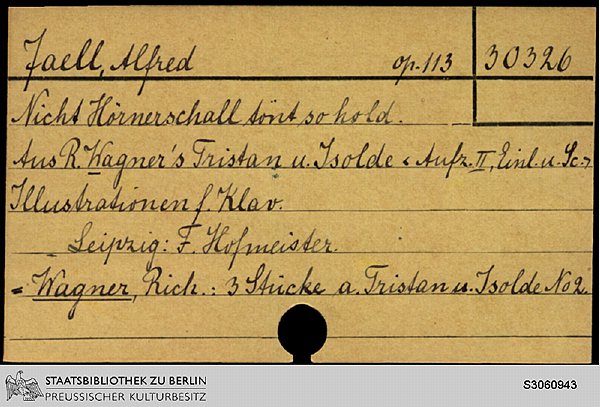 Jaell, Alfred op. 113 30326
Nicht Hörnerschall tönt so hold.
Aus R. Wagner's Tristan u. Isolde < Aufz. II, Einl. u. Sc. >
Illustrationen f. Klav.
_ Leipzig: F. Hofmeister.
= Wagner, Rich.: 3 Stücke a. Tristan u. Isolde No 2.
STAATSBIBLIOTHEK ZU BERLIN
PREUSSISCHER KULTURBESITZ
S3060943